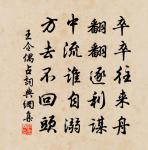 卒卒往来舟
翻翻逐利謀
中流谁自溺
方去不回頭
王令偶占詞典網集